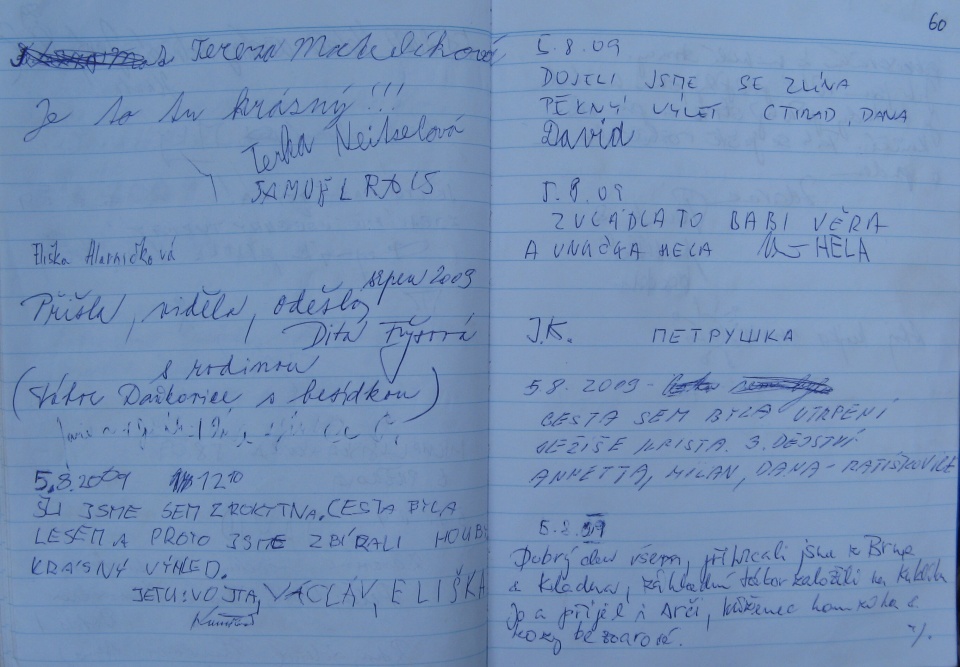 s Tereza
Je to tu krásný!!!
Terka Neitselová
SAMUEL RAIS
Eliška
srpen 2009
Přišla, viděla, odešla
Dita
s rodinou
(Tábor Daňkovice s besídkou)
5.8.2009 12 10
ŠLI JSME SEM Z ROKYTNA. CESTA BYLA
LESEM A PROTO JSME ZBÍRALI HOUBY
KRÁSNÝ VÝHLED.
JE TU: VOJTA, VÁCLAV, ELIŠKA
60
5.8.09
DOJELI JSME SE ZLÍNA
PĚKNÝ VÝLET CTIRAD, DANA
David
5.8.09
ZVLÁDLA TO BABI VĚRA
A VNUČKA HELA HELA
J.K. ПЕТРУШКА
5.8. 2009 -
CESTA SEM BYLA UTRPENÍ
JEŽÍŠE KRISTA. 3. DĚJSTVÍ
ANNETTA, MILAN, DANA - RATÍŠKOVICE
Dobrý den všem, přihicali jsme z Brna
a Kladna, základní tábor založili na
Jo a přijel i Arči, kříženec
kozy bezoarové.